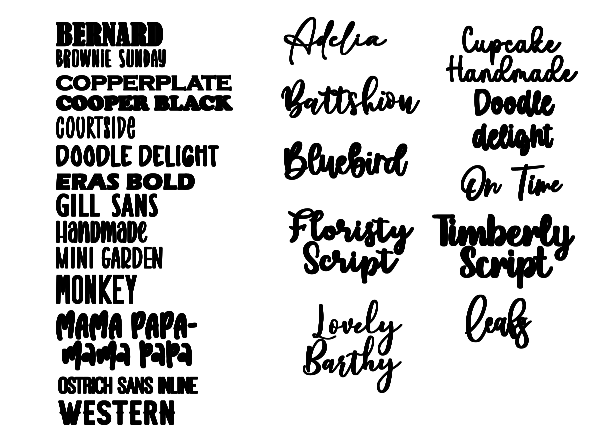 BERNARD
BROWNIE SUNDAY
COPPERPLATE
COOPER BLACK
COURTSIDE
DOODLE DELIGHT
ERAS BOLD
GILL SANS
Handmade
MINI GARDEN
MONKEY
MAMA PAPA-
mama papa
OSTRICH SANS INLINE
WESTERN
Adelia
Battshion
Bluebird
Floristy
Script
Lovely
Barthy
Cupcake
Handmade
Doodle
delight
On Time
Timberly
Script